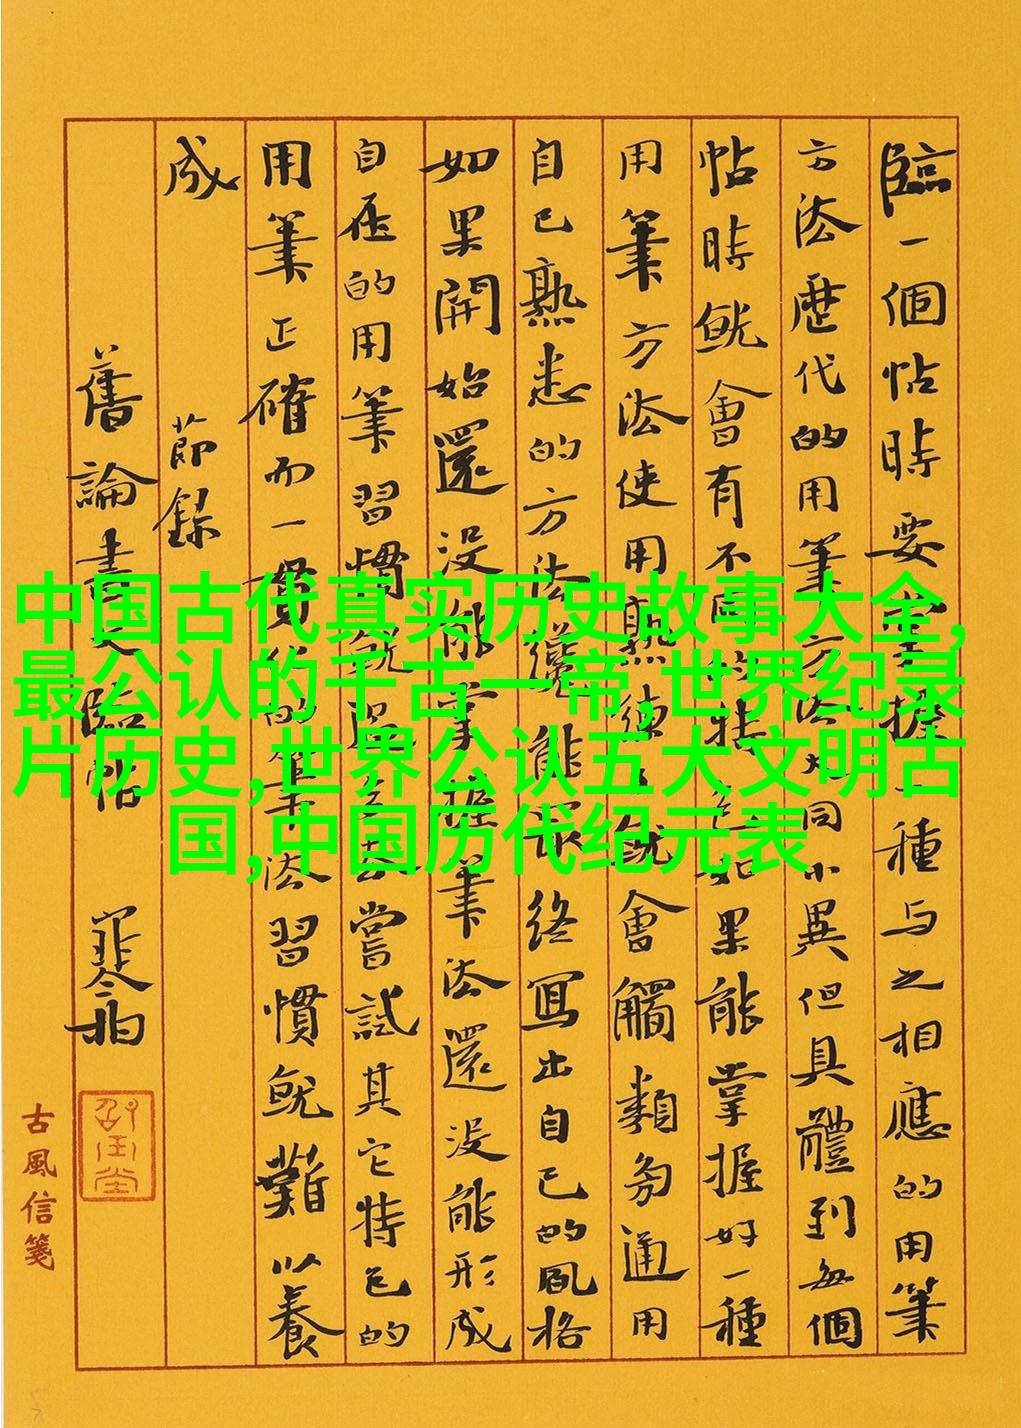 臨一個帖時要掌握一種与之相應的用筆
方法歷代的用筆方法大同小異但具體到每個
帖時就會有不同的特点如果能掌握好一種
用筆方法使用熟練了就會觸類旁通用
自己熟悉的方法纔能最終寫出自己的風格
如果開始還沒能掌握筆法還沒能形成
自在的用筆習慣就去嘗試其它特色的
用筆正確而一貫的筆法習慣就難以養
成 節錄
舊論書文臨帖
古風信箋
中国古代真实历史故事大全,
最公认的千古一帝,世界纪录
片历史,世界公认五大文明古
国,中国历代纪元表